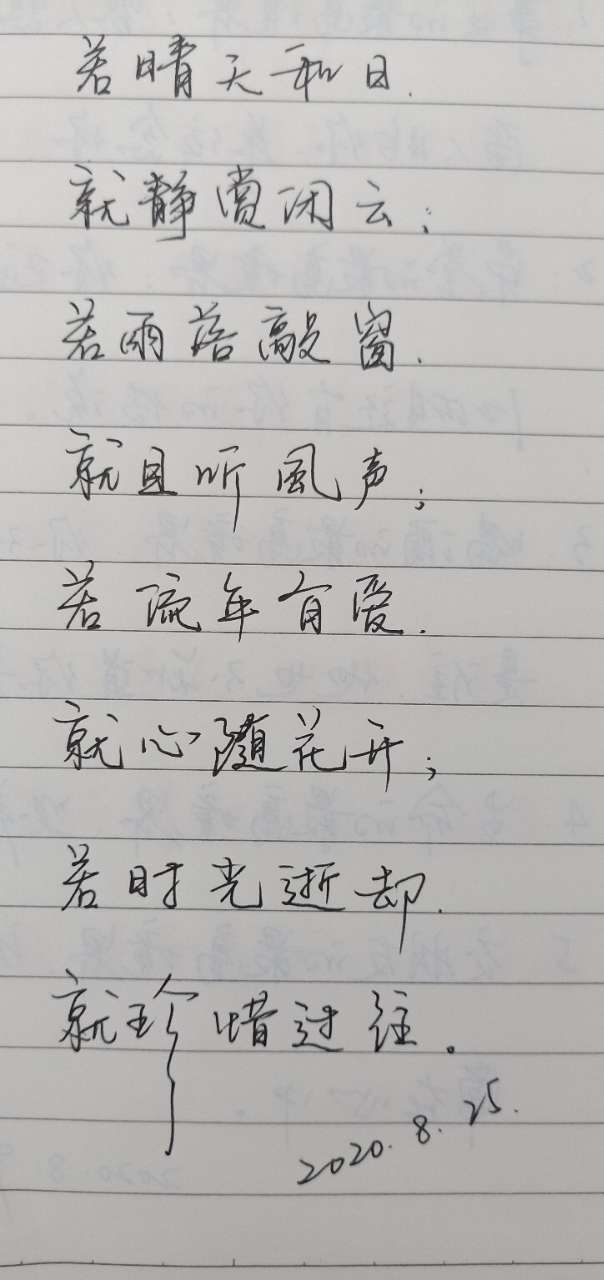 若晴天和日.
就静赏闲云;
若雨落敲窗.
就且听風声;
若流年有爱.
就心随花开;
若时光逝却.
就珍惜过往。
2020.8.25.